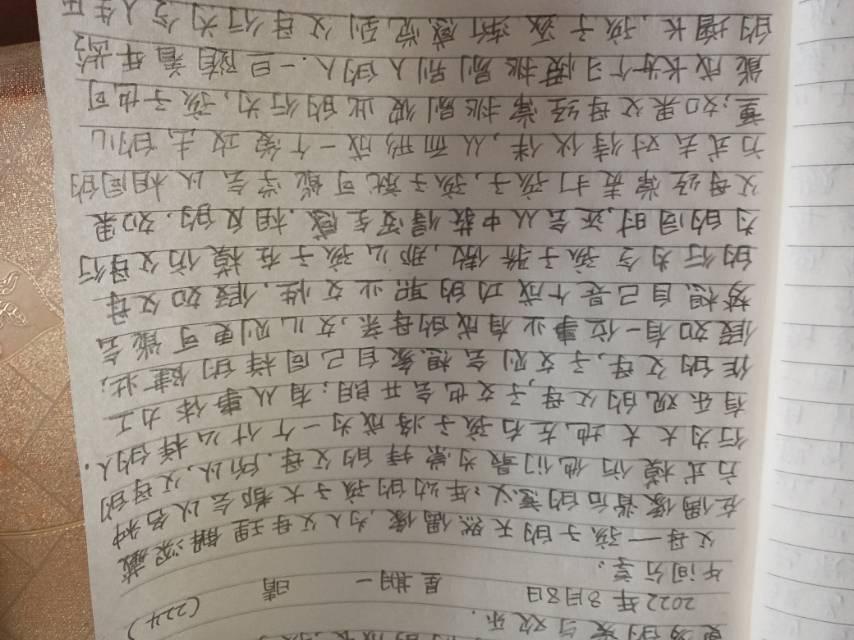 更多的爱与欢乐.
2022年8月8日 星期一 晴 (224)
午间分享.
父母——孩子的天然偶像,为人父母理解深藏
在偶像背后的意义:年幼的孩子大都会以各种
方式模仿他们最为崇拜的父母.所以,父母的
行为大大地左右孩子将成为一个什么样的人.
有乐观的父母,子女也会开朗;有从事体力工
作的父母,子女则会想象自己同样的健壮;
假如有一位事业有成的母亲,女儿则更可能会
梦想自己是个成功的职业女性,假如父母
的行为令孩子骄傲,那么孩子在模仿父母行
为的同时,还会从中获得安全感,相反的,如果
父母经常责打孩子,孩子就可能学会以相同的
方式去对待伙伴,从而形成一个爱攻击的儿
童;如果父母经常挑剔彼此的行为,孩子也可
能成长为个习惯挑剔别人的人.一旦随着年龄
的增长,孩子逐渐感觉到父母行为令人生厌